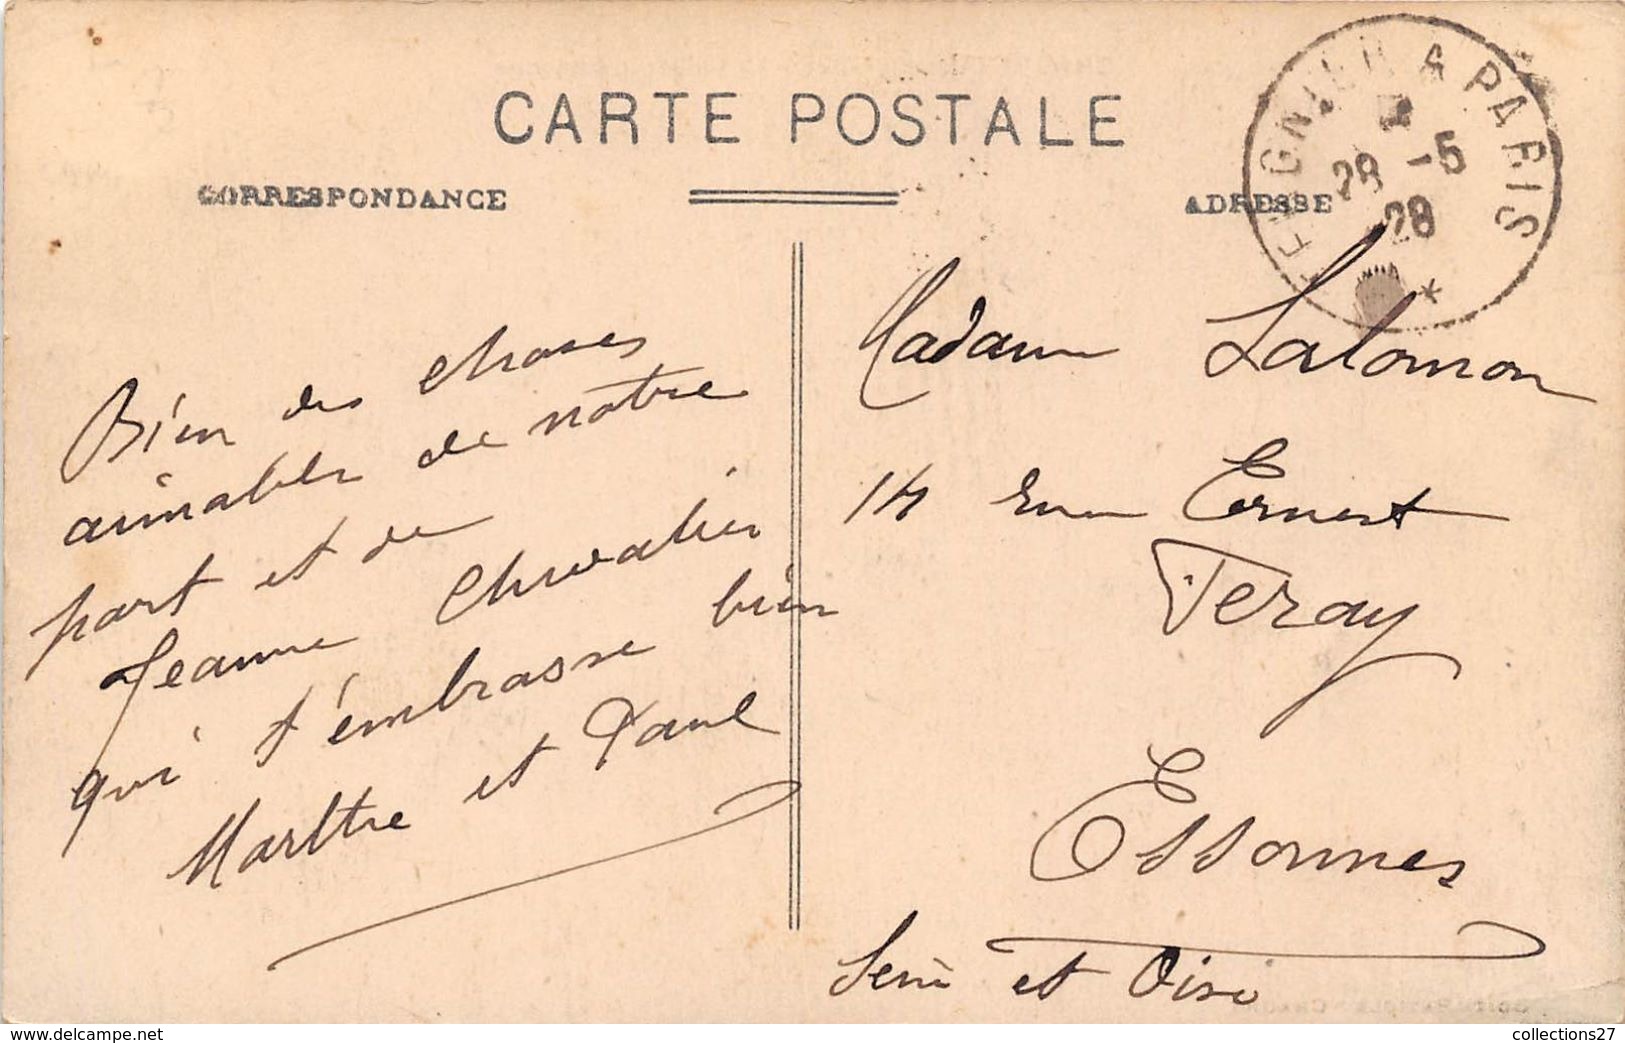 CARTE POSTALE
CORRESPONDANCE
ADRESSE
TERGNIER A PARIS
28 -5
28
*
Bien des choses
aimables de notre
part et de
Jeanne Chevalier
qui t'embrasse bien
Marthe et Paul
Madame Salomon
14 rue Ernest
Feray
Essonnes
Seine et Oise
collections27